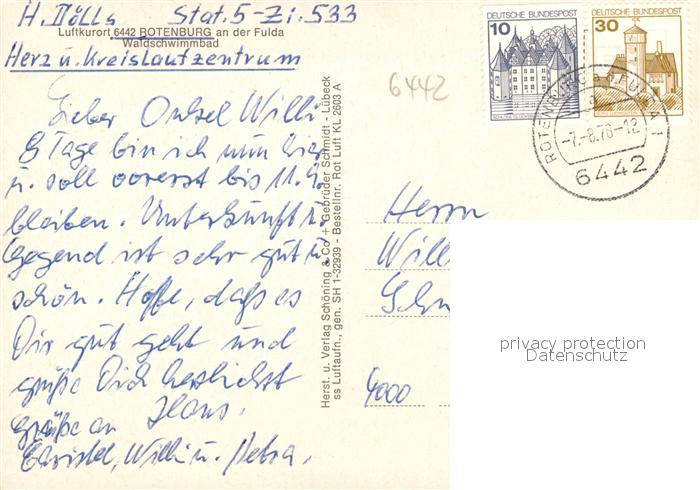 H. Dölls Stat. 5-Zi. 533
Luftkurort 6442 ROTENBURG an der Fulda
Waldschwimmbad
Herz u. Kreislaufzentrum
6442
Lieber Onkel Willi
8 Tage bin ich nun hier
u. soll vorerst bis 11.9.
bleiben. Unterkunft u.
Gegend ist sehr gut u.
schön. Hoffe, daß es
Dir gut geht und
grüße Dich herzlichst
Hans.
Grüße an
Christel, Willi u. Petra.
Herst. u. Verlag Schöning & Co + Gebrüder Schmidt - Lübeck
ss Luftaufn., gen. SH 1-32939 - Bestellnr. Rot Luft KL 2603 A
DEUTSCHE BUNDESPOST
10
DEUTSCHE BUNDESPOST
30
ROTENBURG A D FULDA 1
-7.-8.78-12
6442
Herrn
Will
Schu
4000
privacy protection
Datenschutz